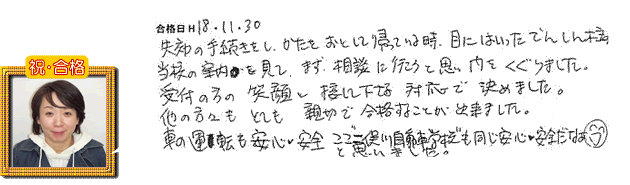 合格日 H18.11.30
失効の手続きをし、かたをおとして帰っている時、目にはいったでんしん柱
当校の案内を見て、まず、相談に行こうと思い門をくぐりました。
受付の方の笑顔と接して下さる対応で決めました。
他の方々もとても親切で合格することが出来ました。
車の運転も安心・安全 ここ二俣川自動車学校も同じ安心・安全だなあ
と思いました。
祝・合格